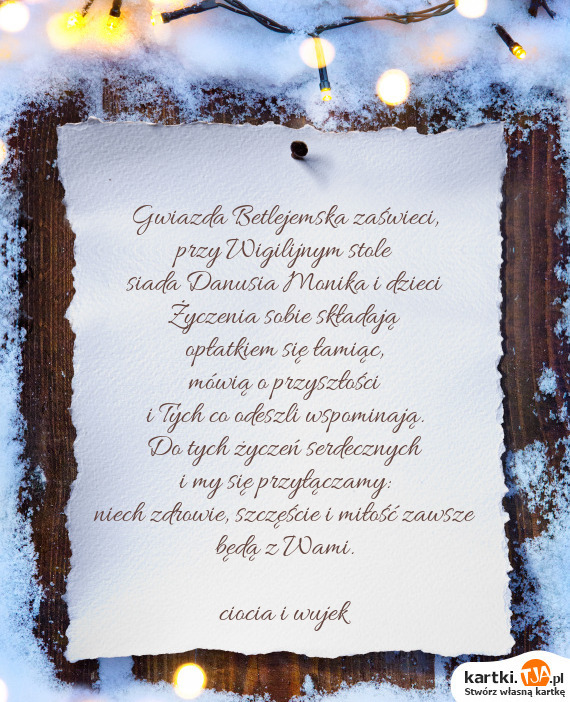 Gwiazda Betlejemska zaświeci,
przy Wigilijnym stole
siada Danusia Monika i dzieci
Życzenia sobie składają
opłatkiem się łamiąc,
mówią o przyszłości
i Tych co odeszli wspominają.
Do tych życzeń serdecznych
i my się przyłączamy:
niech zdrowie, szczęście i miłość zawsze
będą z Wami.
ciocia i wujek
kartki.TJA.pl
Stwórz własną kartkę